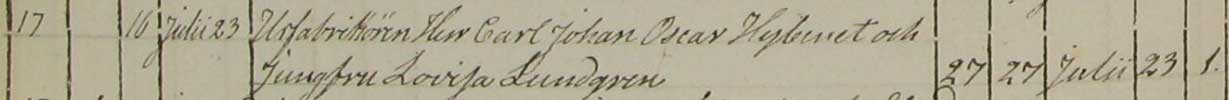 17 16 Julii 23 Urfabrikören Herr Carl Johan Oscar och
Jungfru Lovisa Lundgren 27 27 Julii 23 1.